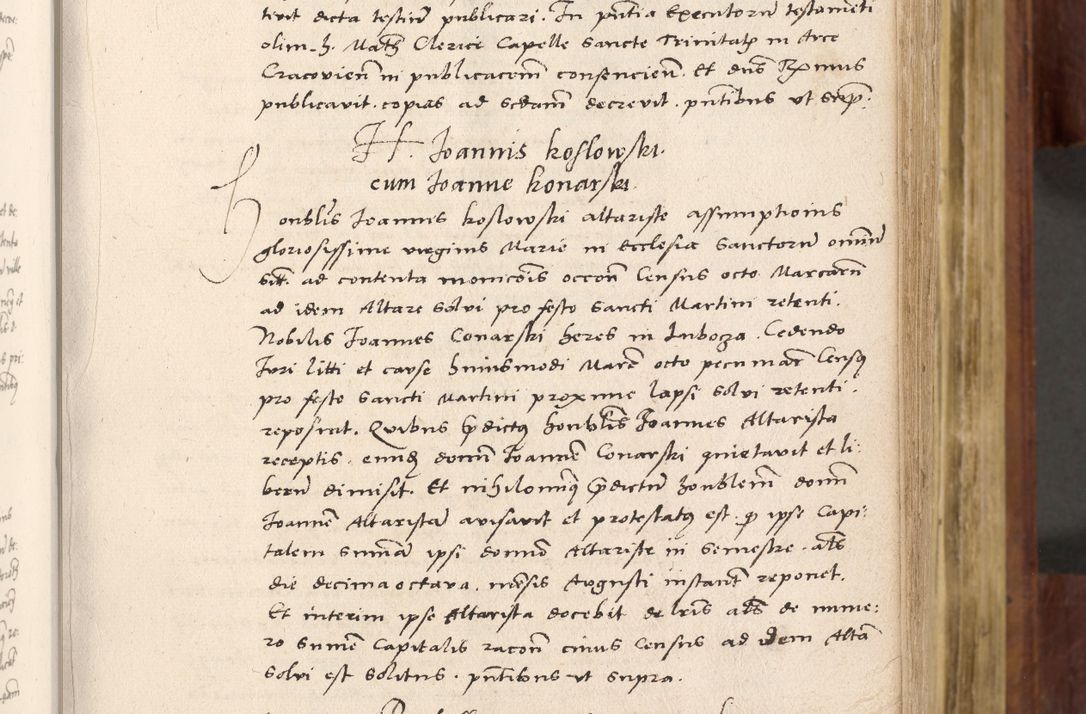 tivit dicta testiũ publicari. In pñtia Executorũ testameti
olim h. Mathˢ Clerici Capelle Sancte Trinitatꝭ in Arce
Cracovieñ in publicacõni consencieñ. Et dnꝰ
publicavit. copias ad decrevit. pñtibus ut supª.
H. Joannis koslowski.
cum Joanne konarski.
Honblis Joannis koslowski altariste assumptionis
gloriosissime virginis Marie in Ecclesia Sanctorũ omniũ
ad contenta monicõis occõn Census octo Marcarũ
ad idem Altare Solvi pro festo Sancti Martini retenti.
Nobilis Joannes Conarski heres in Luboza. Cedendo
Juri litti et cause huiusmodi Marc̃ octo pecuniar̃ Censꝰ
pro festo Sancti Martini proxime lapsi Solvi retenti.
reposuit. Quibus p̃dictꝰ honblis Joannes Altarista
receptis. eundẽ domñ Joannẽ Conarski quietavit et li:
berũ dimisit. Et nihilominꝰ p̃dictũ honblem domñ
Joannẽ Altaristã avisavit et protestatꝰ est. ꝙ ipse Capi:
talem Sumã ipsi domno Altariste in Semestre. als
die decima octava. mẽsis Augusti instantꝭ reponet.
Et interim ipse Altarista docebit de lris als de nume:
ro Sumẽ Capitalis racoñ cuius Census ad idem Altã
Solvi est Solitus. pñtibus ut supra.